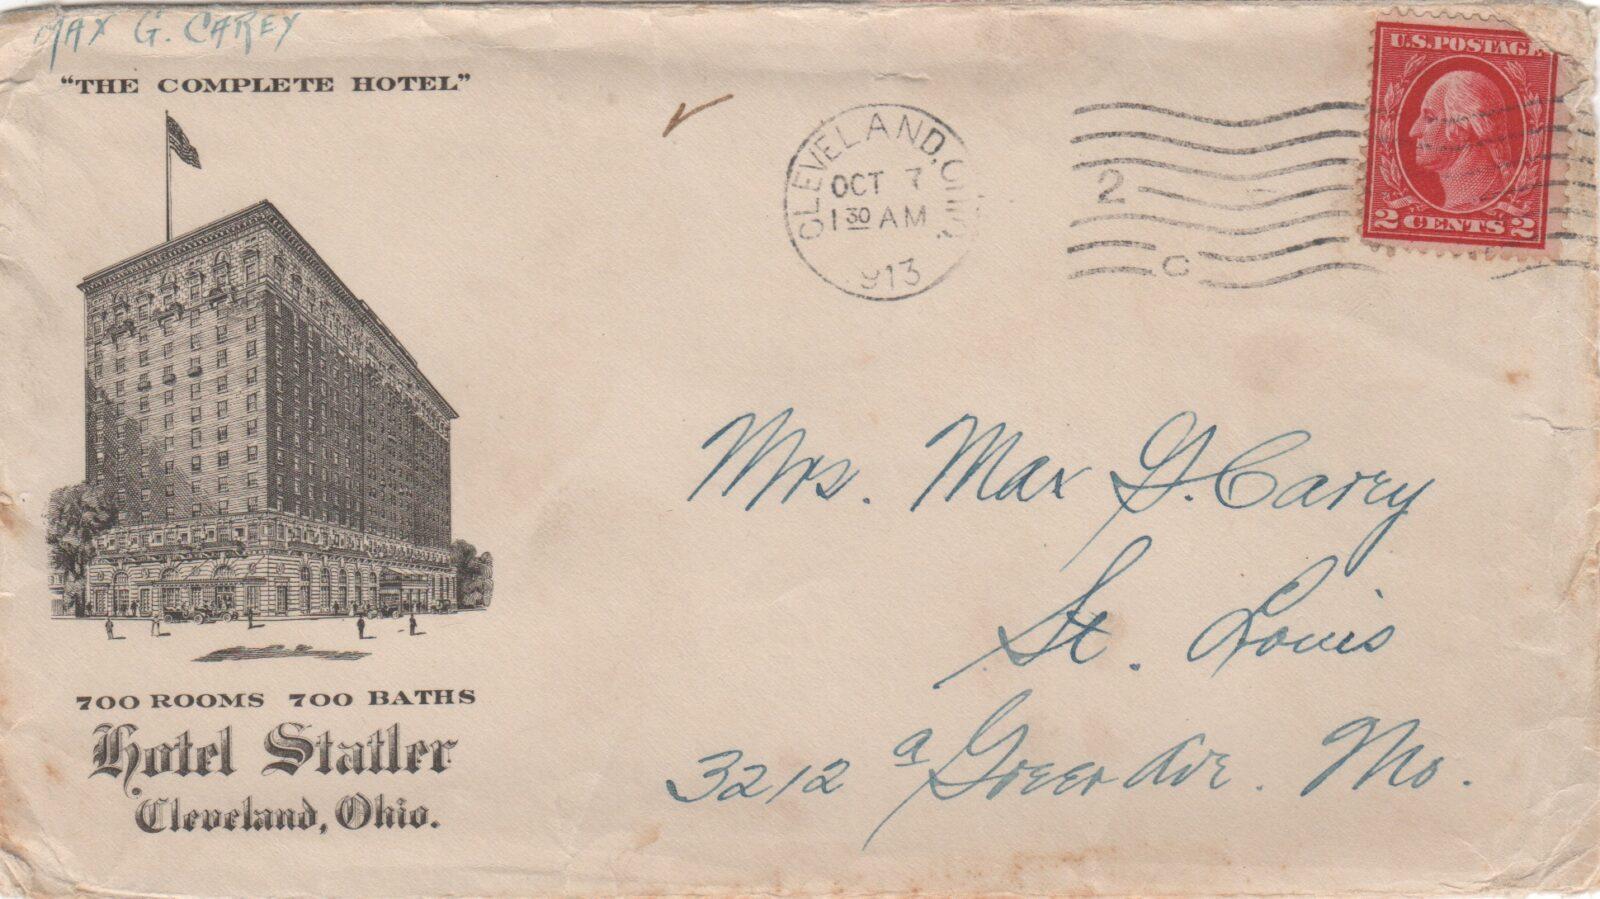 MAX G. CAREY
"THE COMPLETE HOTEL"
CLEVELAND, OHIO
OCT 7
1 30 AM
913
2
C
U.S. POSTAGE
2 CENTS 2
Mrs. Max G. Carey
St. Louis
3212 a Greer Ave. Mo.
700 ROOMS 700 BATHS
Hotel Statler
Cleveland, Ohio.